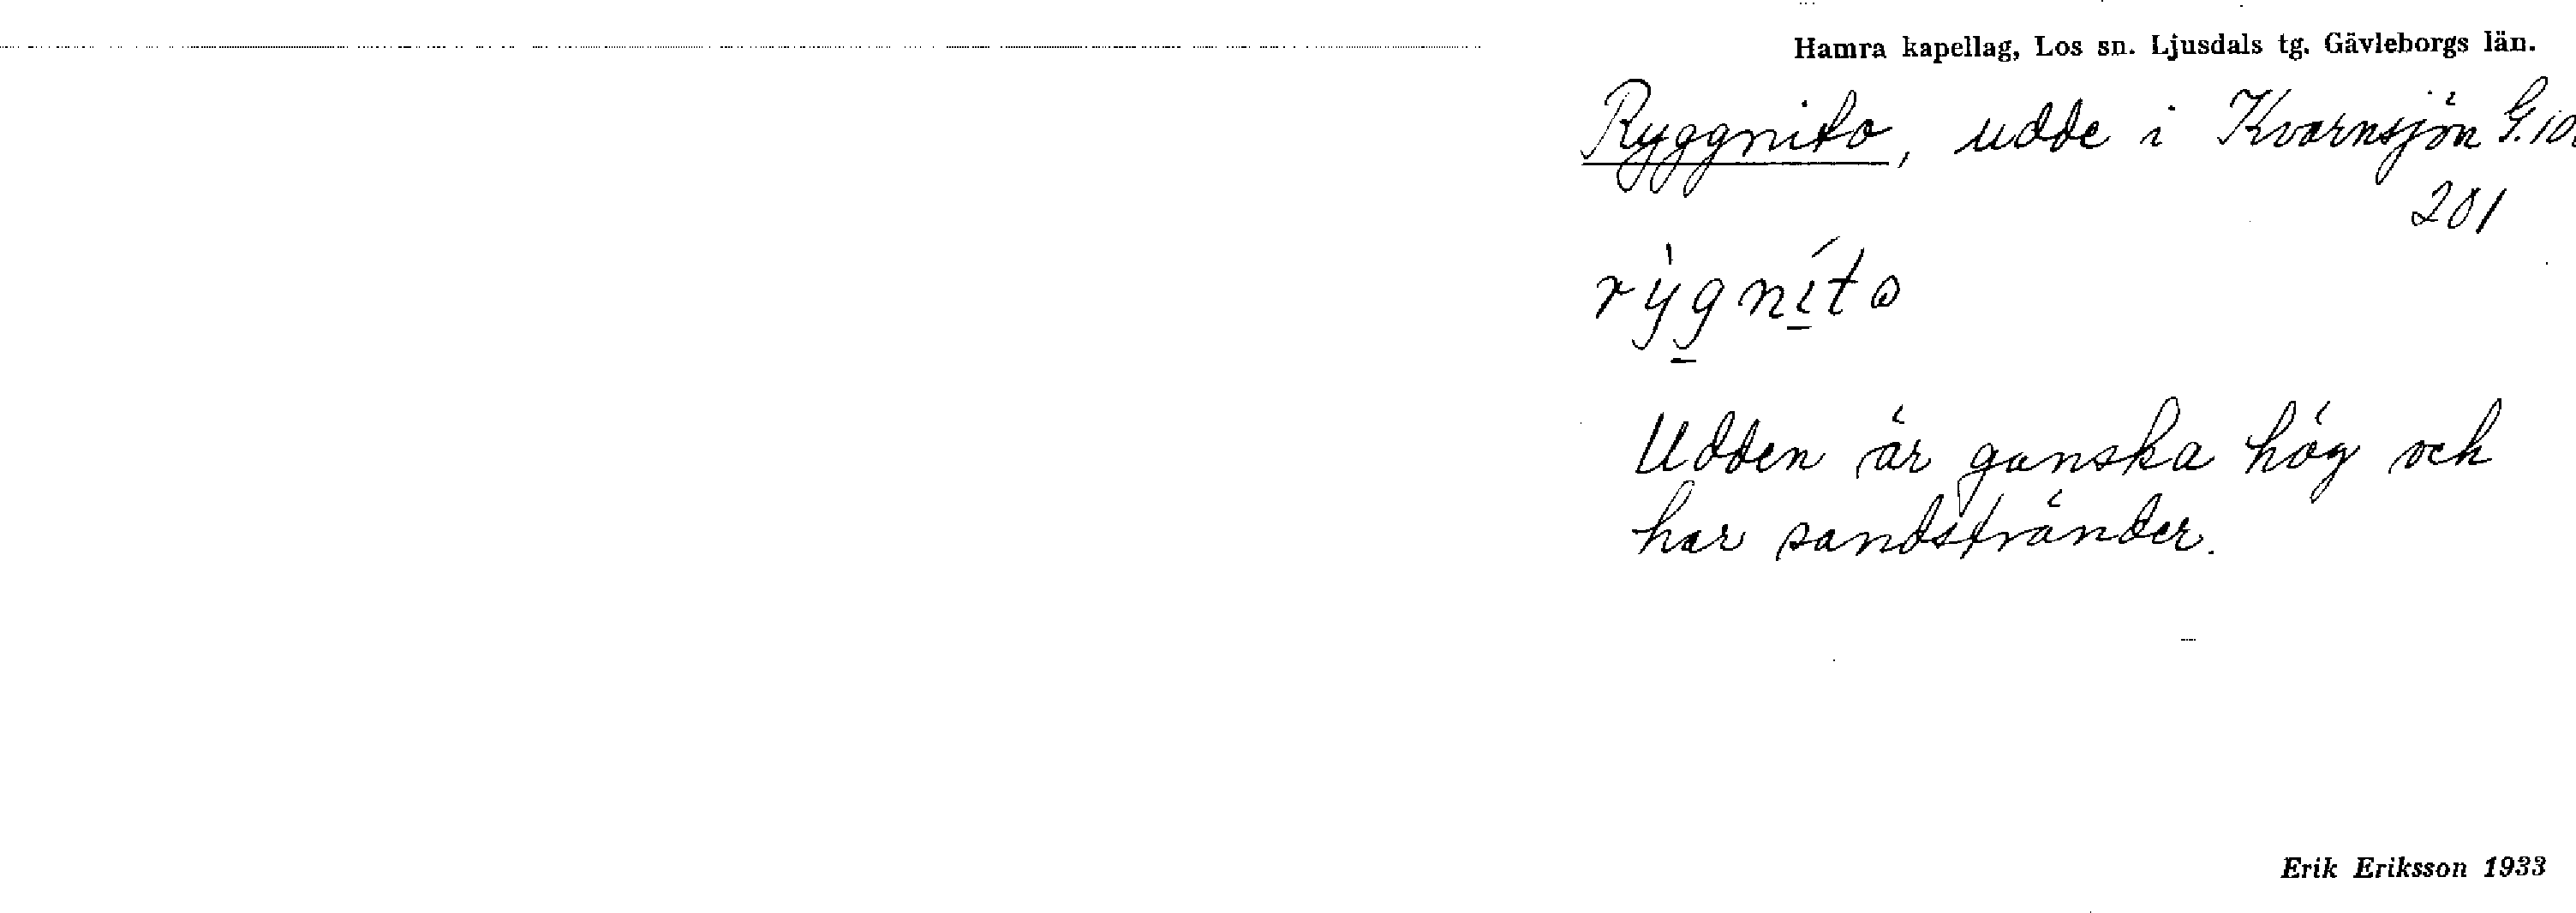 Hamra kapellag, Los sn. Ljusdals tg. Gävleborgs län.
Ryggnito, udde i Kvarnsjön G. 10
201
rỳgníto
Udden är ganska hög och
har sandstränder.
Erik Eriksson 1933